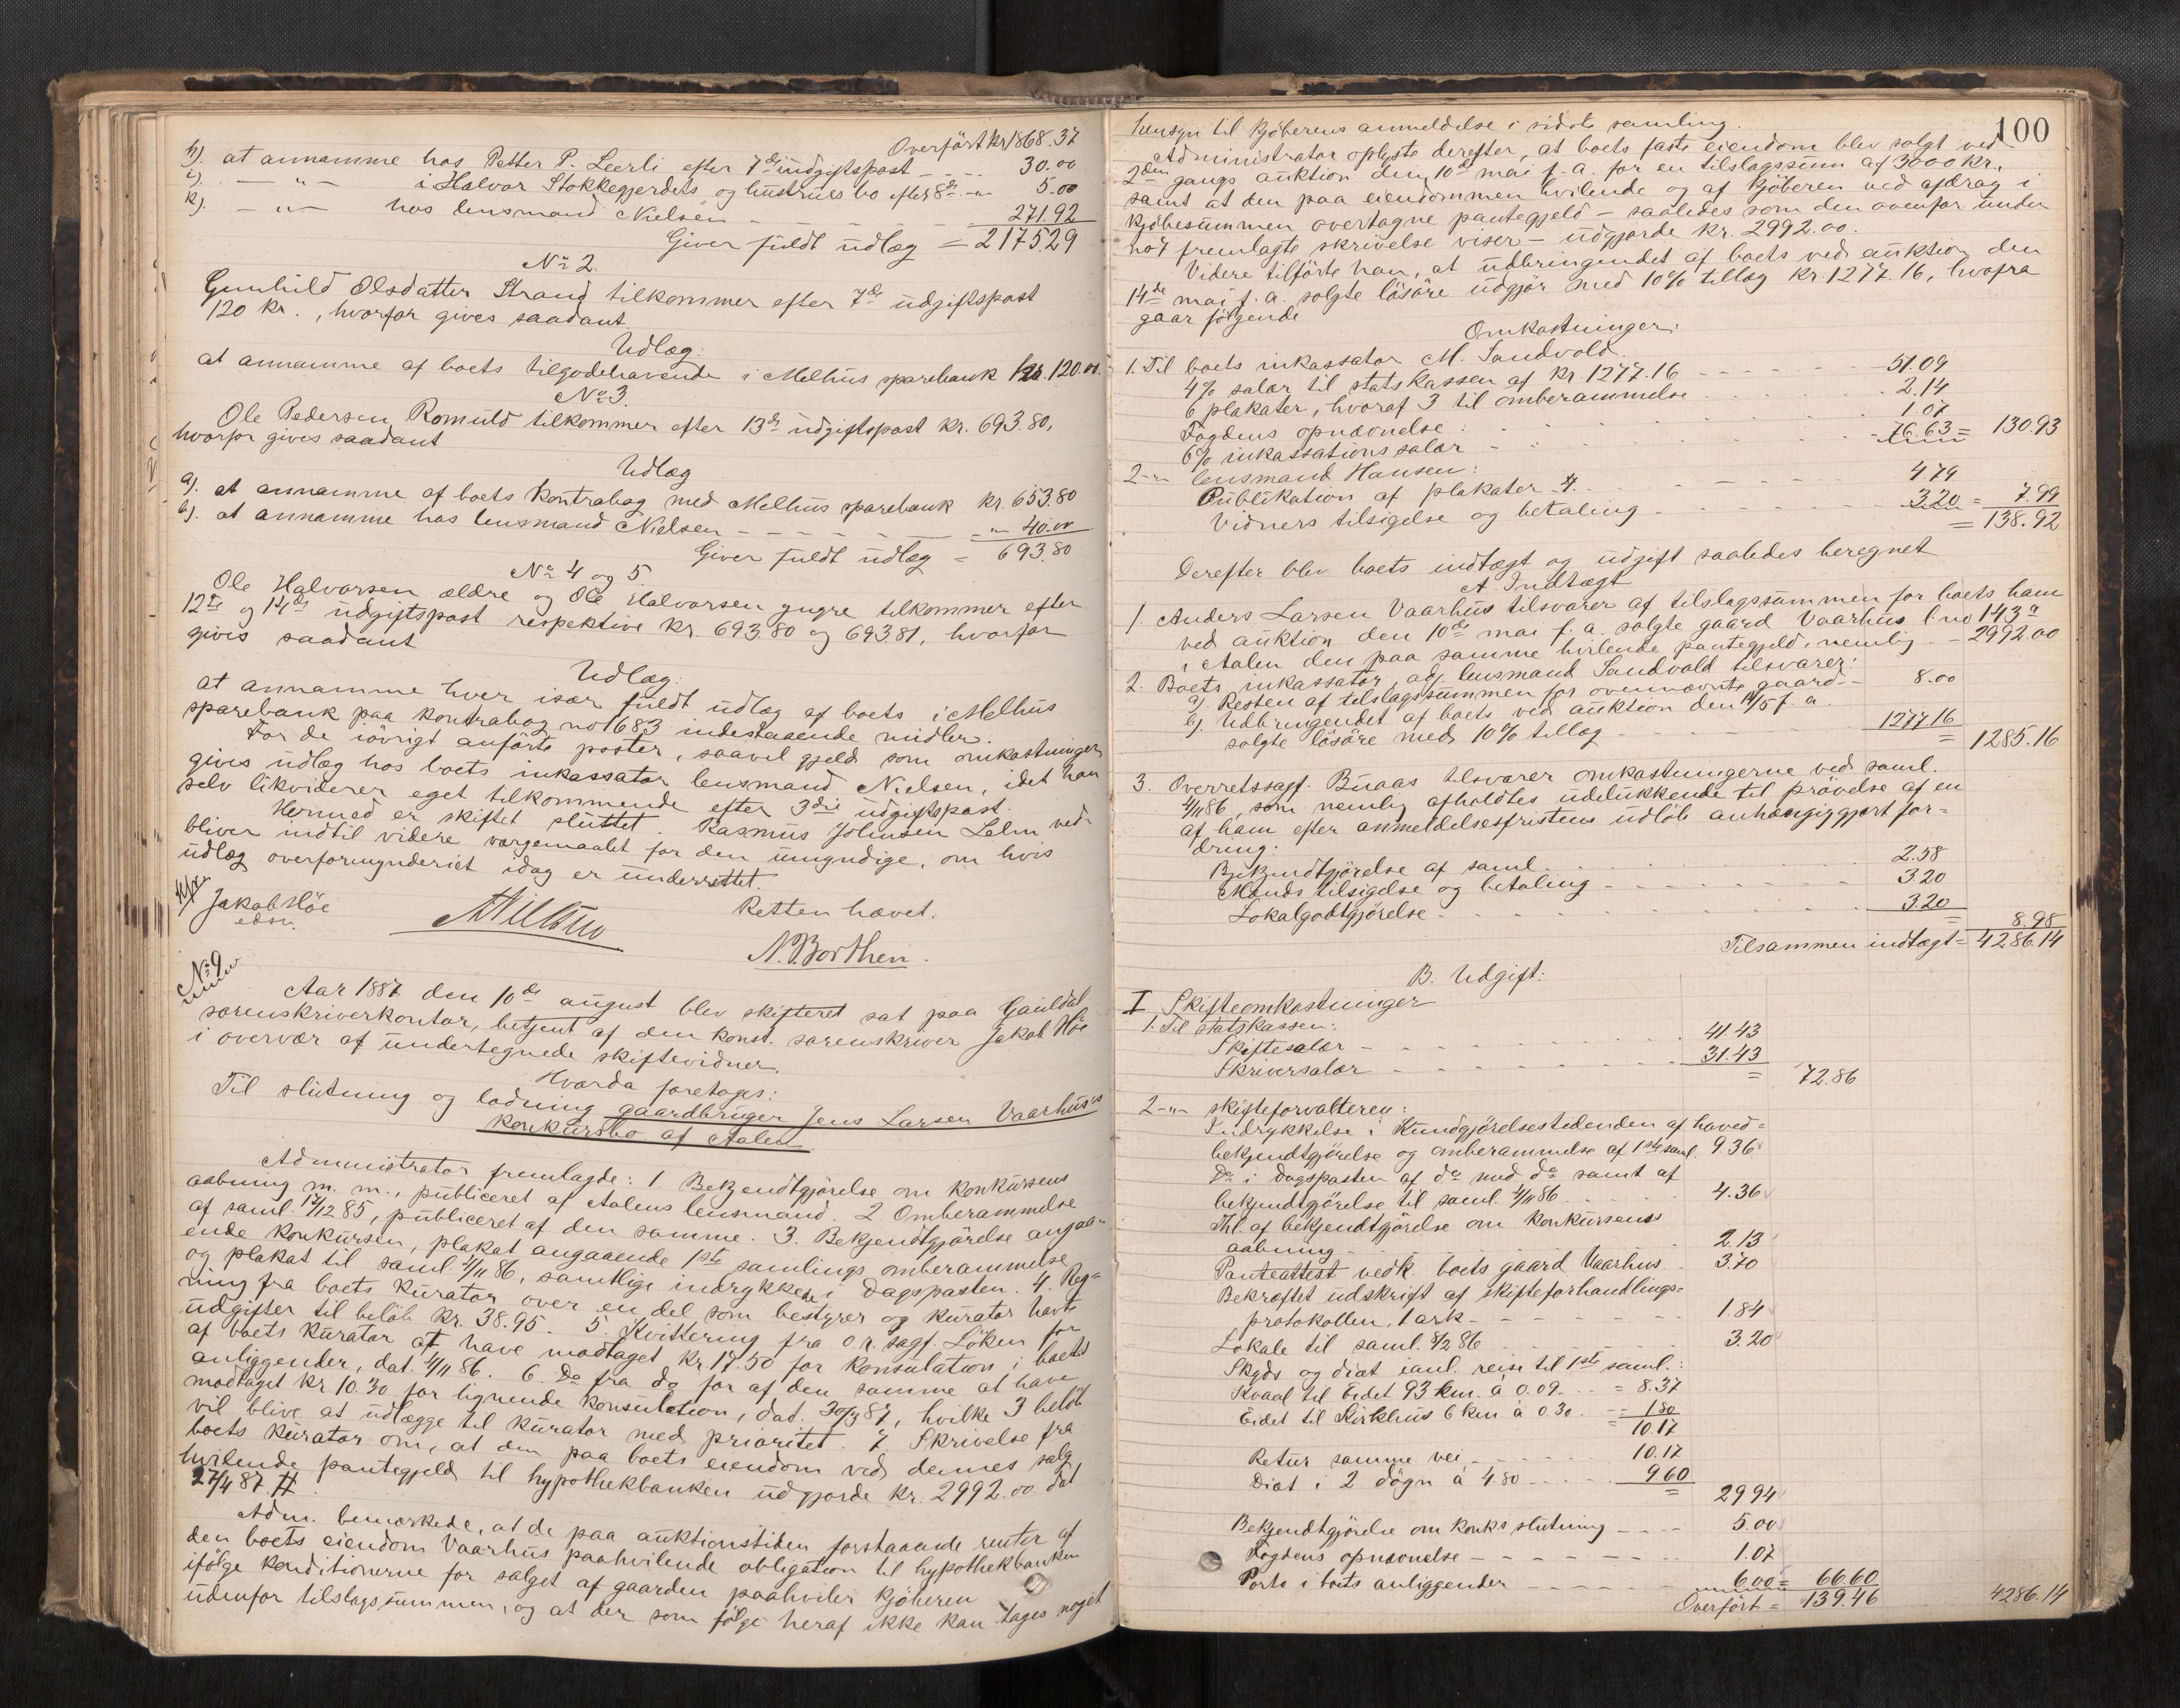 Overført kr 1868.37
h). at annamme hos Petter P. Leerli efter 7de udgiftspost 30.00
i). — " — i Halvor Stokkegjerdets og hustrues bo efter 8de — " — 5.00
k). — " — hos lensmand Nielsen 271.92
Giver fuldt udlæg = 2175.29
No 2.
Gunhild Olsdatter Strand tilkommer efter 7de udgiftspost
120 kr., hvorfor gives saadant
Udlæg:
at annamme af boets tilgodehavende i Melhus sparebank kr. 120.00.
No 3.
Ole Pedersen Romuld tilkommer efter 13de udgiftspost kr. 693.80,
hvorfor gives saadant
Udlæg
a). at annamme af boets kontrabog med Melhus sparebank kr. 653.80
b). at annamme hos lensmand Nielsen — " — 40.00
Giver fuldt udlæg = 693.80
No 4 og 5
Ole Halvorsen ældre og Ole Halvorsen yngre tilkommer efter
12te og 14de udgiftspost respektive kr. 693.80 og 693.81, hvorfor
gives saadant
Udlæg:
at annamme hver især fuldt udlæg af boets i Melhus
sparebank paa kontrabog no 1683 indestaaende midler.
For de iøvrigt anførte poster, saavel gjeld som omkostninger
gives udlæg hos boets inkassator lensmand Nielsen, idet han
selv likviderer eget tilkommende efter 3die udgiftspost.
Hermed er skiftet sluttet. Rasmus Johnsen Lelm ved-
bliver indtil videre værgemaalet for den umyndige, om hvis
udlæg overformynderiet idag er underrettet.
Retten hævet.
Jakob Høe
edsv.
N. Borthen.
No 9
Aar 1887 den 10de august blev skifteret sat paa Gauldal
sorenskriverkontor, betjent af den konst. sorenskriver Jakob Høe
i overvær af undertegnede skiftevidner.
Hvorda foretoges:
Til slutning og lodning gaardbruger Jens Larsen Vaarhus's
konkursbo af Aalen
Administrator fremlagde: 1. Bekjendtgjørelse om konkursens
aabning m. m., publiceret af Aalens lensmand. 2. Omberammelse
af saml. 17/12 85, publiceret af den samme. 3. Bekjendtgjørelse angaa-
ende konkursen, plakat angaaende 1ste samlings omberammelse
og plakat til saml. 4/11 86, samtlige indrykkede i Dagsposten. 4. Reg-
ning fra boets kurator over en del som bestyrer og kurator havte
udgifter til beløb kr. 38.95. 5. Kvittering fra o.r. sagf. Løken for
af boets kurator at have modtaget kr. 17.50 for konsulation i boets
anliggender, dat. 4/11 86. 6. Do fra do for af den samme at have
modtaget kr 10.30 for lignende konsulation, dat. 30/3 87, hvilke 3 beløb
vil blive at udlægge til kurator med prioritet. 7. Skrivelse fra
boets kurator om, at den paa boets eiendom ved dennes salg
hvilende pantegjeld til hypothekbanken udgjorde kr. 2992.00 dat
27/4 87. #
Adm. bemærkede, at de paa auktionstiden forstaaende renter af
den boets eiendom Vaarhus paahvilende obligation til hypothekbanken
ifølge konditionerne for salget af gaarden paahviler kjøberen
udenfor tilslagssummen, og at der som følge heraf ikke kan tages noget
100
hensyn til kjøberens anmeldelse i sidste samling.
Administrator oplyste derefter, at boets faste eiendom blev solgt ved
2den gangs auktion den 10de mai f. a. for en tilslagssum af 3000 kr.,
samt at den paa eiendommen hvilende og af kjøberen ved afdrag i
kjøbesummen overtagne pantegjeld — saaledes som den ovenfor under
no 7 fremlagte skrivelse viser — udgjorde kr. 2992.00.
Videre tilførte han, at udbringendet af boets ved auktion den
14de mai f. a. solgte løsøre udgjør med 10% tillæg kr. 1277.16, hvofra
gaar følgende
Omkostninger:
1. Til boets inkassator M. Sandvold.
4% salær til statskassen af kr 1277.16 51.09
6 plakater, hvoraf 3 til omberammelse 2.14
Fogdens opnævnelse 1.07
6% inkassationssalær 76.63 = 130.93
2 — " — lensmand Hansen:
Publikation af plakater 4. 4.79
Vidners tilsigelse og betaling 3.20 = 7.99
= 138.92
Derefter blev boets indtægt og udgift saaledes beregnet
A. Indtægt
1. Anders Larsen Vaarhus tilsvarer af tilslagssummen for boets ham
ved auktion den 10de mai f. a. solgte gaard Vaarhus l. no 143a
i Aalen den paa samme hvilende pantegjeld, nemlig 2992.00
2. Boets inkassator, adj. lensmand Sandvold tilsvarer:
a). Resten af tilslagssummen for ovennævnte gaard 8.00
b). Udbringendet af boets ved auktion den 14/5 f. a.
solgte løsøre med 10% tillæg 1277.16
= 1285.16
3. Overretssagf. Buaas tilsvarer omkostningerne ved saml.
4/11 86, som nemlig afholdtes udelukkende til prøvelse af en
af ham efter anmeldelsesfristens udløb anhængiggjort for-
dring:
Bekjendtgjørelse af saml. 2.58
Mænds tilsigelse og betaling 3.20
Lokalgodtgjørelse 3.20
= 8.98
Tilsammen indtægt = 4286.14
B. Udgift:
I Skifteomkostninger
1. Til statskassen:
Skiftesalær 41.43
Skriversalær 31.43
= 72.86
2 — " — skifteforvalteren:
Indrykkelse i Kundgjørelsestidenden af hoved-
bekjendtgjørelse og omberammelse af 1ste saml. 9.36
Do i Dagsposten af do med do samt af
bekjendtgjørelse til saml. 4/11 86 4.36
Thl. af bekjendtgjørelse om konkursens
aabning 2.13
Panteattest vedk. boets gaard Vaarhus 3.70
Bekræftet udskrift af skifteforhandlings-
protokollen, 1 ark 1.84
Lokale til saml. 8/2 86 3.20
Skyds og diæt ianl. reise til 1ste saml.:
Kvaal til Eidet 93 km. à 0.09 = 8.37
Eidet til Kirkhus 6 km. à 0.30 = 1.80
= 10.17
Retur samme vei 10.17
Diæt i 2 døgn à 4.80 9.60
= 29.94
Bekjendtgjørelse om konks slutning 5.00
Fogdens opnævnelse 1.07
Porto i boets anliggender 6.00 = 66.60
Overført = 139.46 4286.14